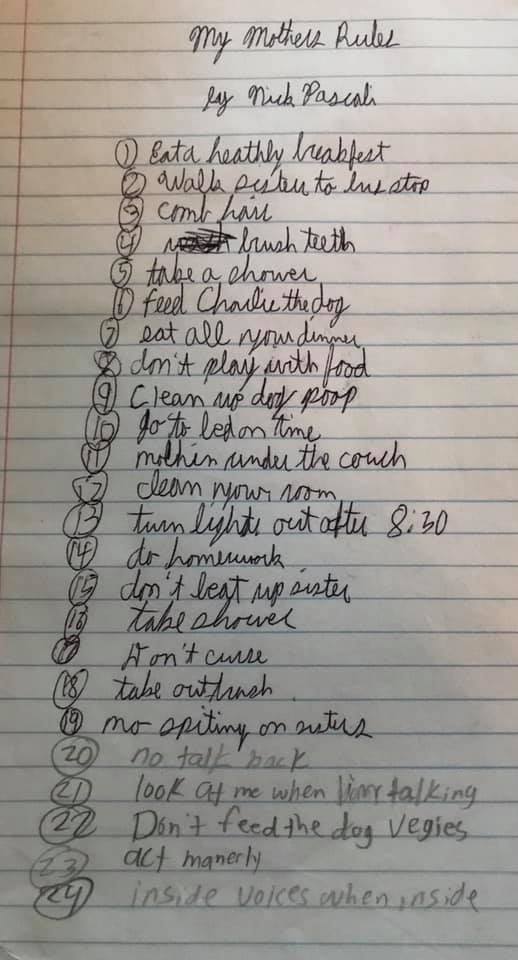 My Mothers Rules
by Nick Pascali
1 Eat a heathly breakfest
2 Walk sister to bus stop
3 comb hair
4 brush teeth
5 take a shower
6 feed Charlie the dog
7 eat all your dinner
8 don't play with food
9 Clean up dog poop
10 go to bed on time
11 nothin under the couch
12 clean your room
13 turn lights out after 8:30
14 do homework
15 don't beat up sister
16 take shower
17 Don't curse
18 take out trash
19 no spiting on sisters
20 no talk back
21 look at me when talking
22 Don't feed the dog vegies
23 act manerly
24 inside voices when inside